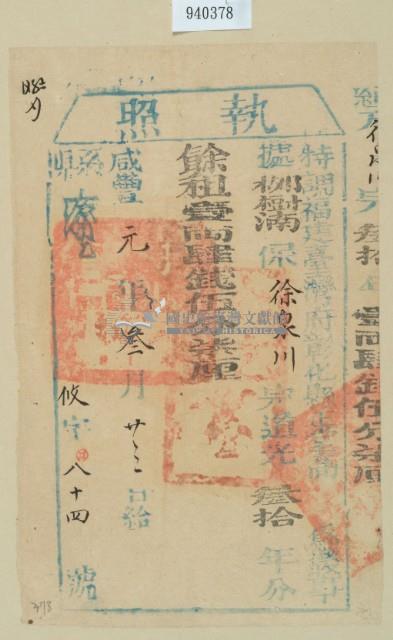 940378
執照
徐泉川完叁拾年壹両肆錢伍分柒厘
特調福建臺灣府彰化縣正堂高
據柳樹湳保徐泉川完道光叁拾年分
餘租壹両肆錢伍分柒厘
咸豐元年叁月廿三日給
縣
攸字八十四號
國史館臺灣文獻館
TAIWAN HISTORICA